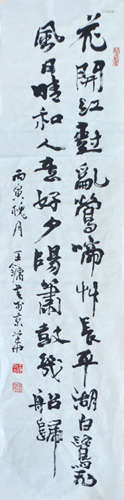 花開紅樹亂鶯啼艸長平湖白鷺飛
風日晴和人意好夕陽簫鼓幾船歸
丙寅 月 王鏞